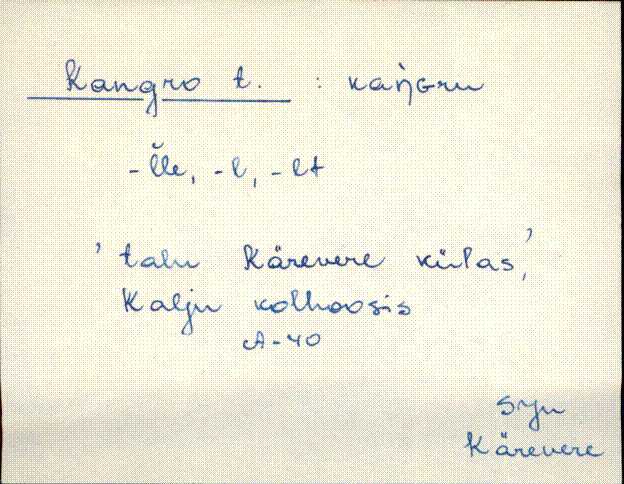 Kangro t. : kaŋ̀Gru
-l̆le, -l, -lt
'talu Kärevere külas,'
Kalju kolhoosis
A-40
SJn
Kärevere